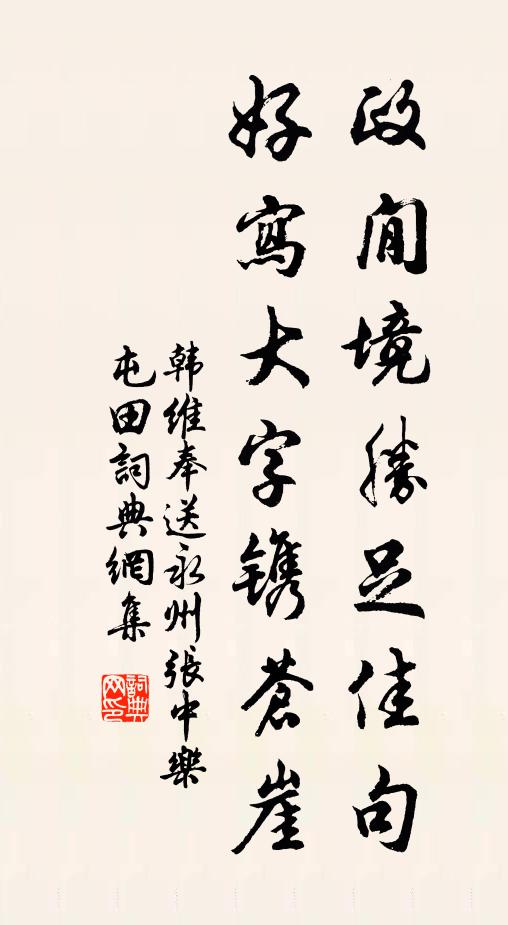 政閒境勝足佳句
好寫大字鐫蒼崖
韩維奉送永州張中樂
屯田詞典網集
詞典网印